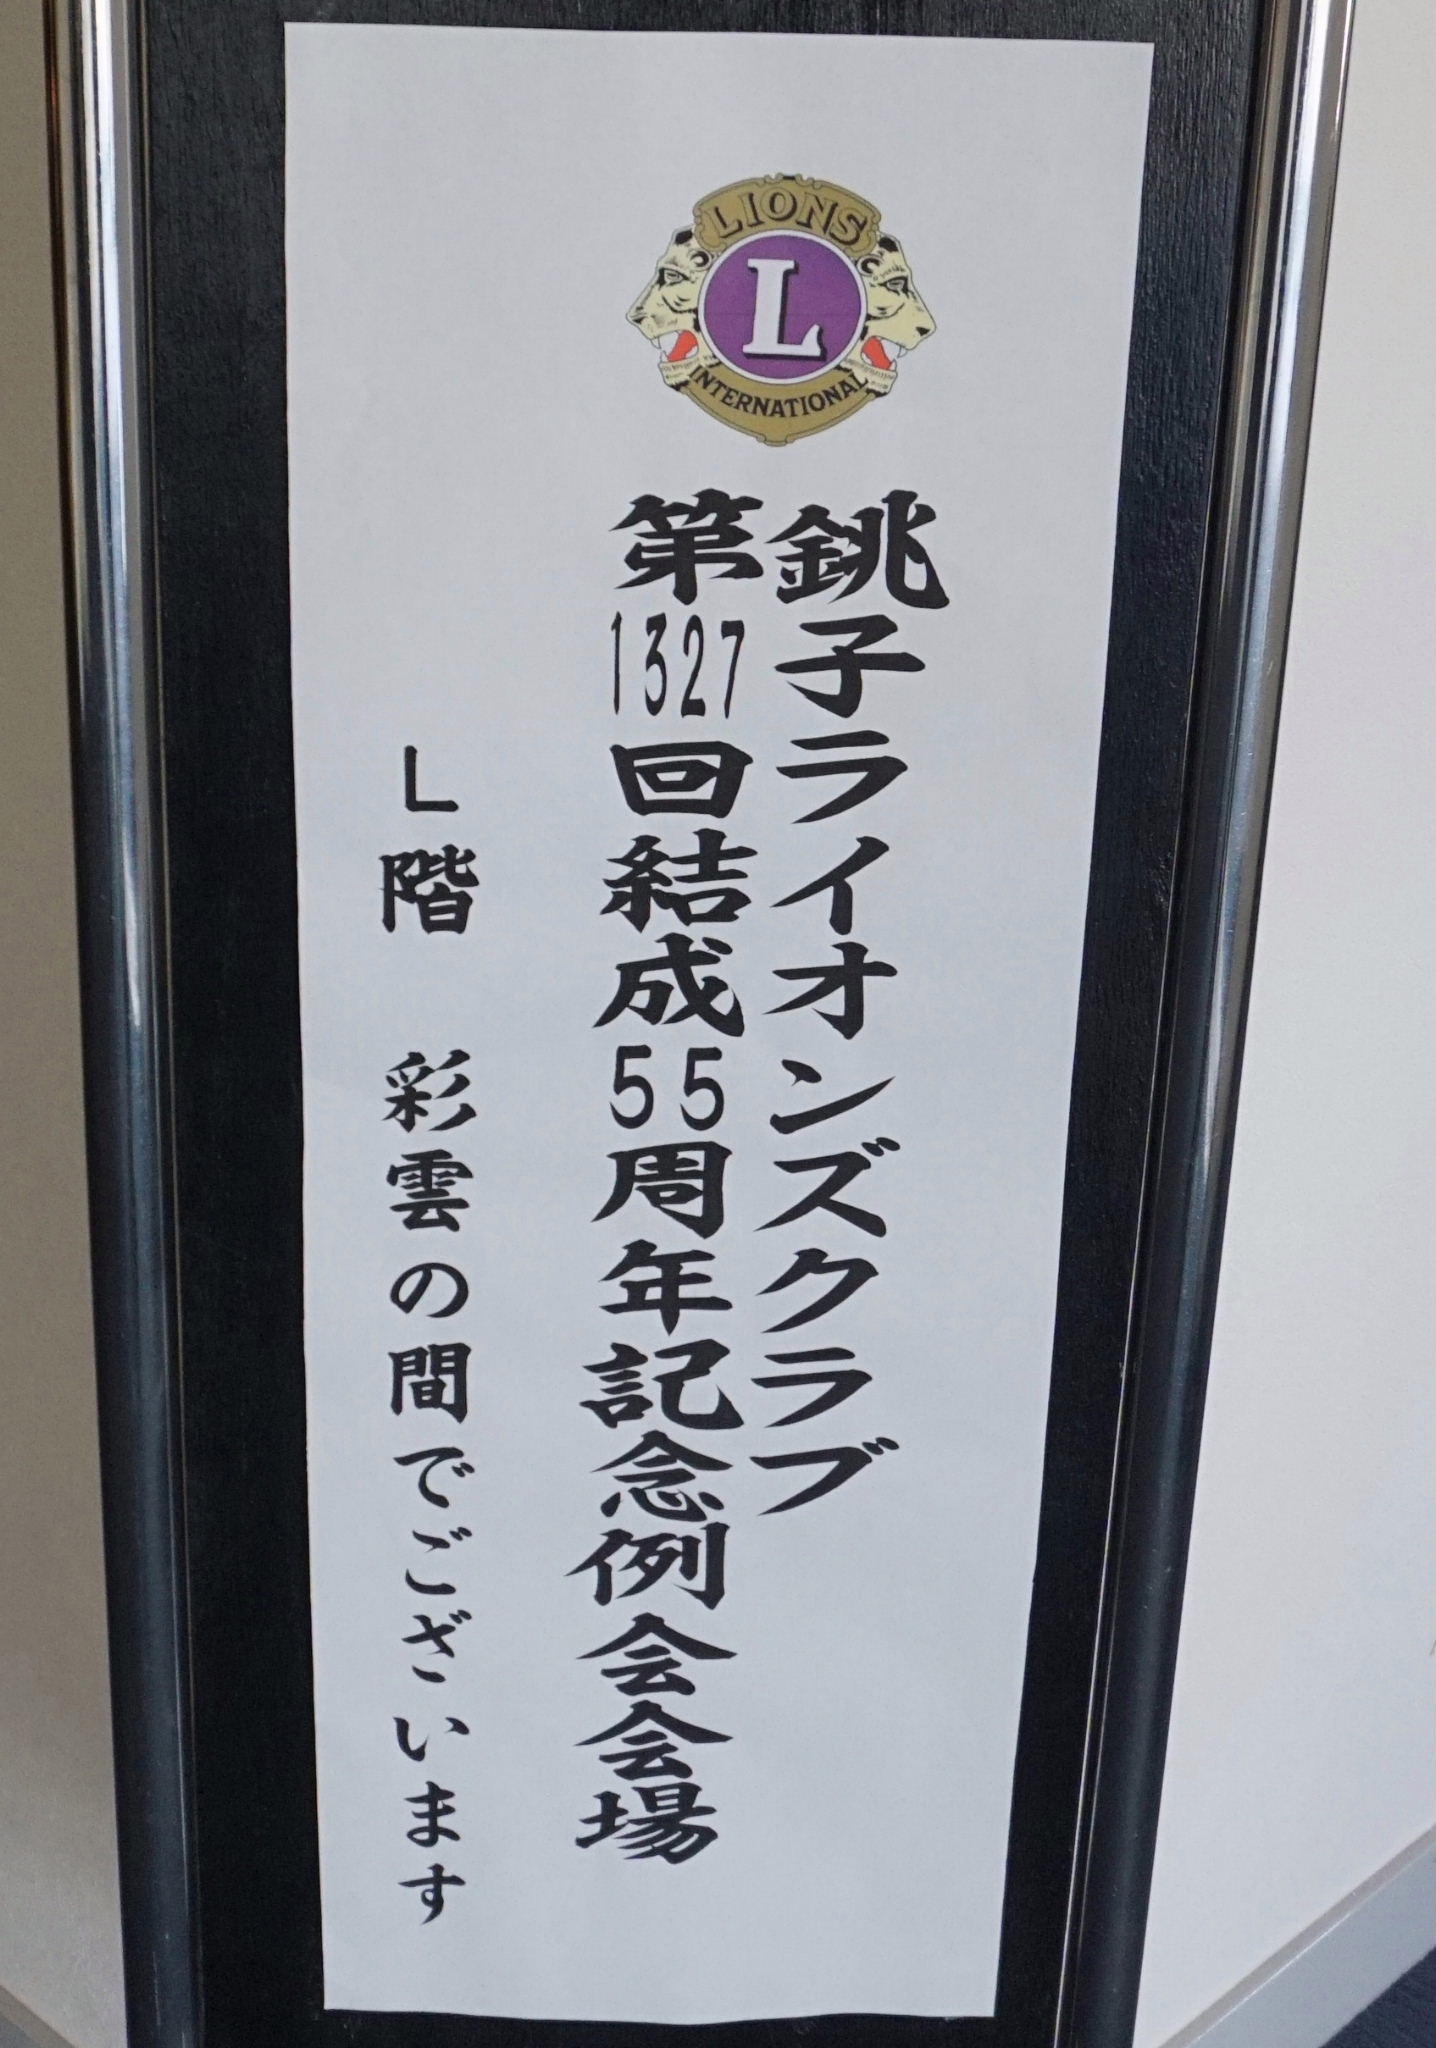 LIONS
L
INTERNATIONAL
銚子ライオンズクラブ
第1327回結成55周年記念例会会場
L階 彩雲の間でございます